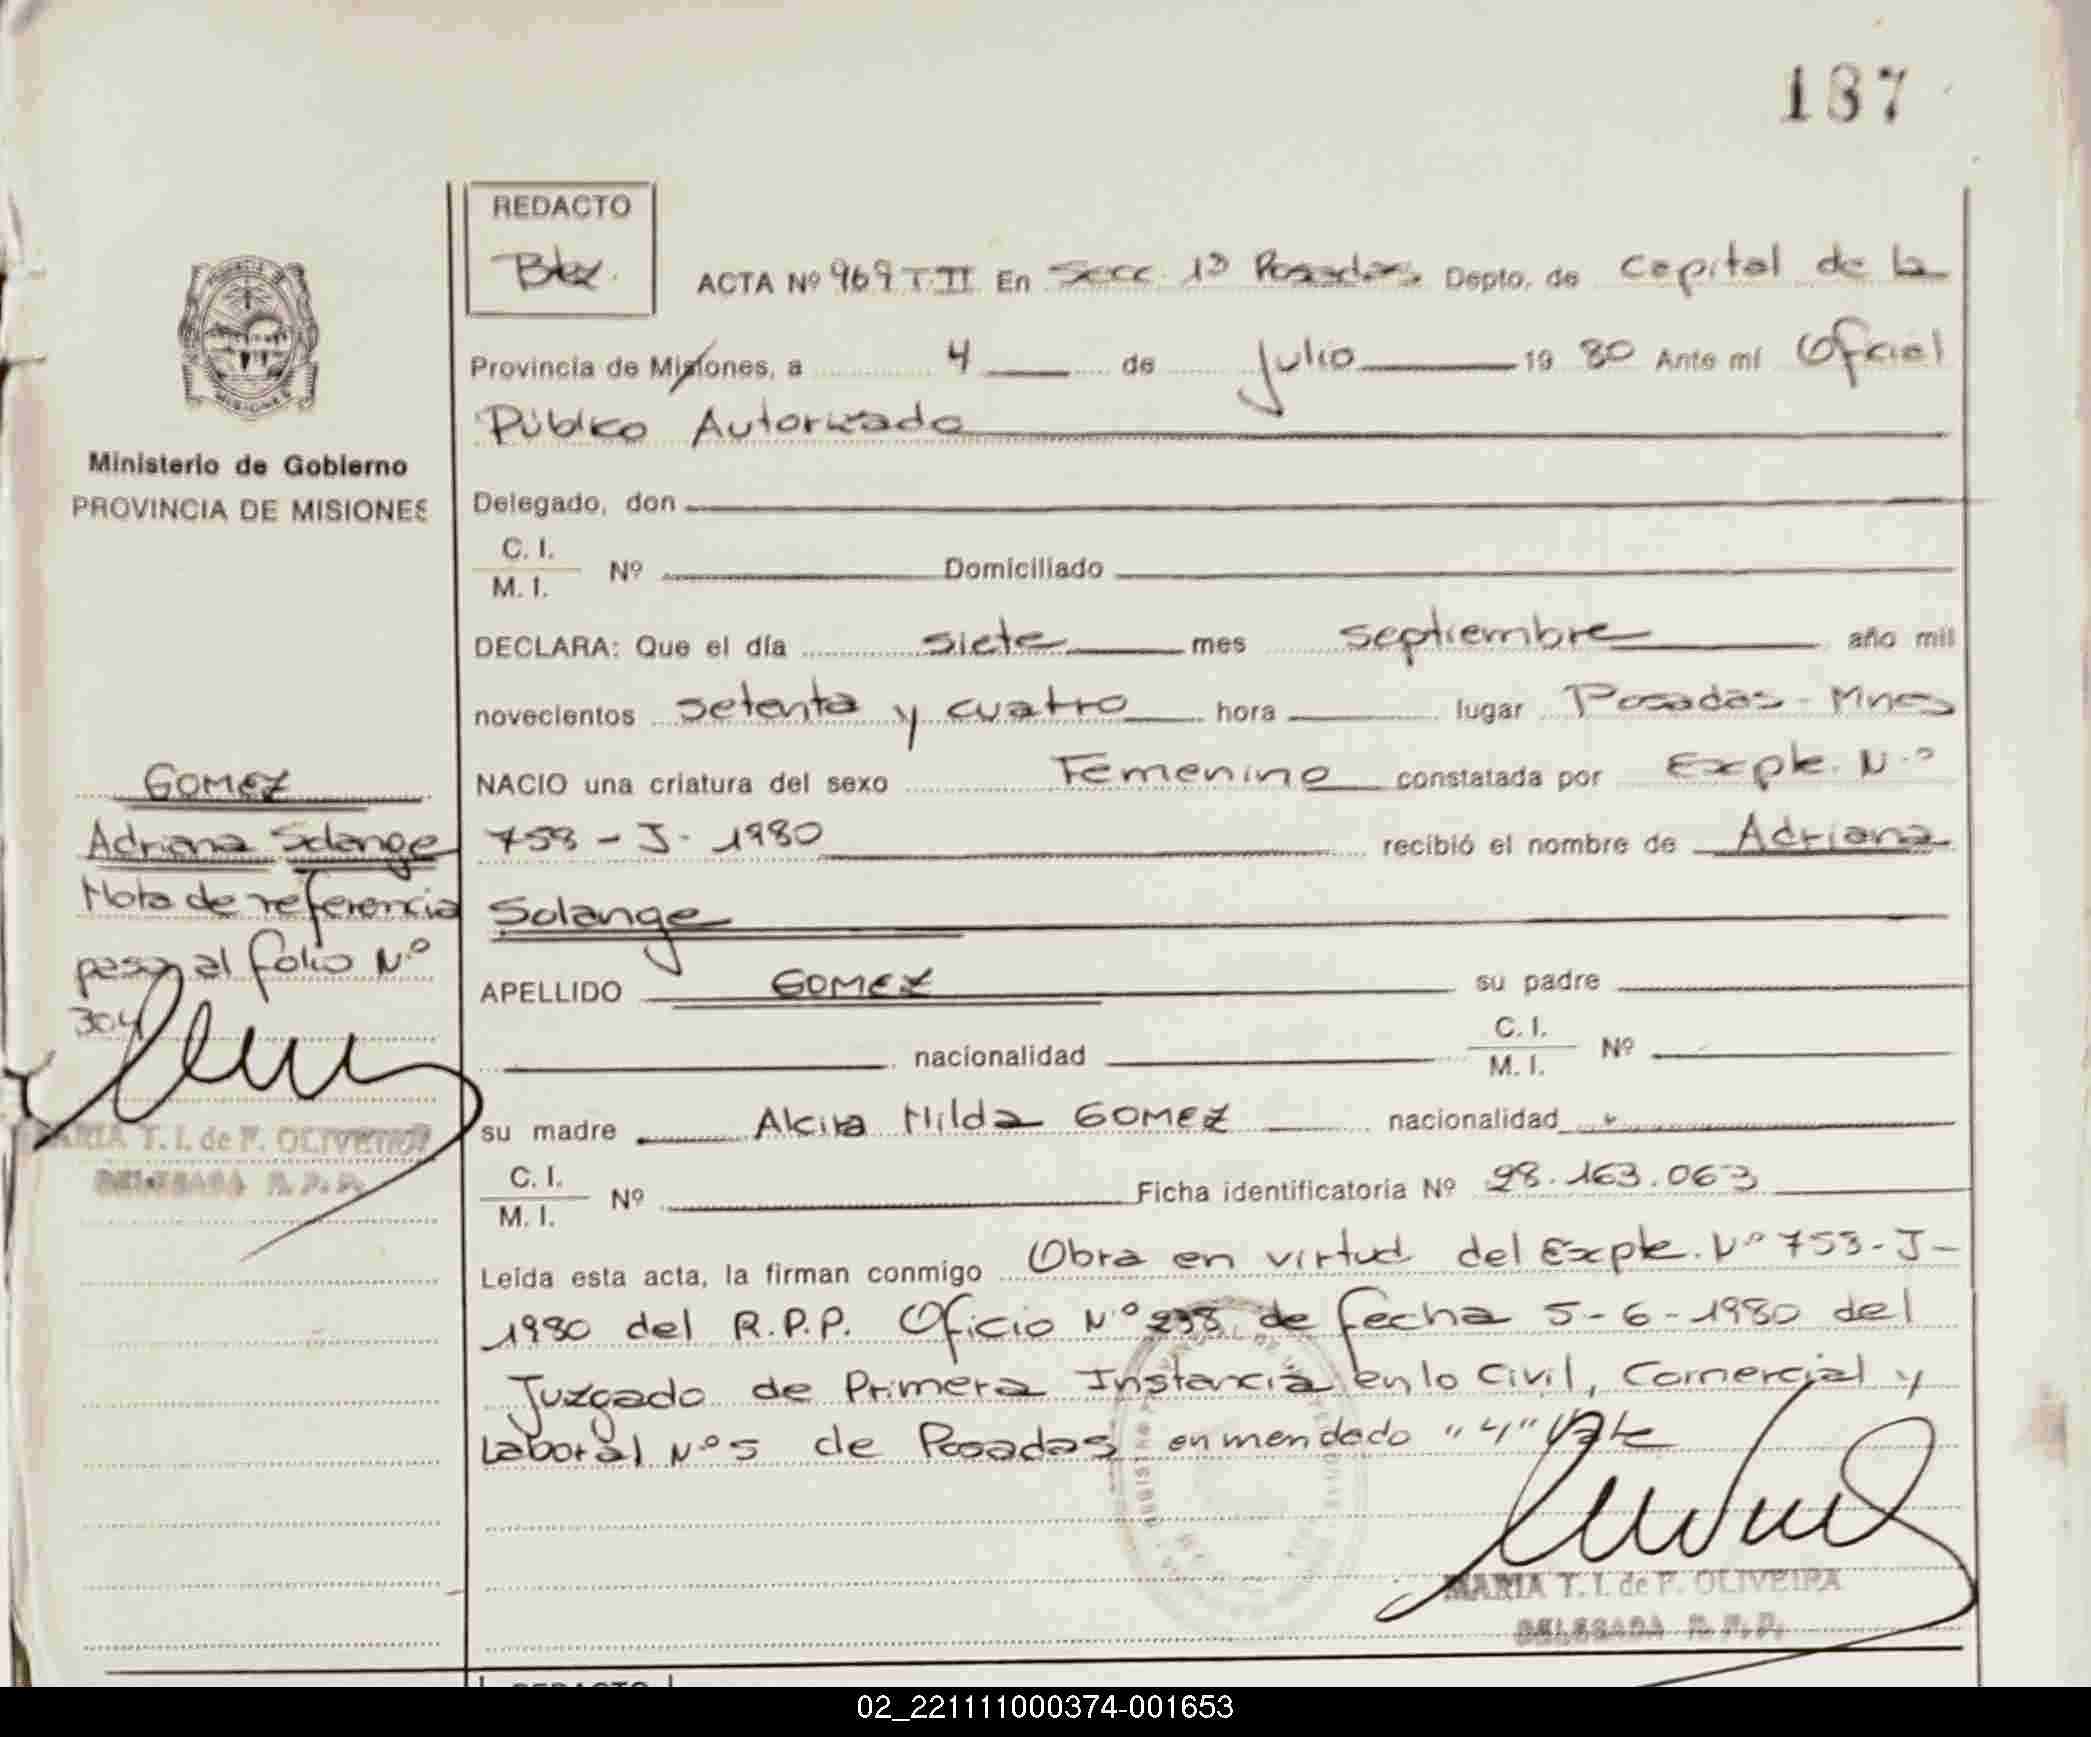 187
REDACTO
ACTA Nº 969 T.II En Secc. 1ª Posadas, Depto. de Capital de la
Provincia de Misiones, a 4 de Julio 1980 Ante mí Oficial
Público Autorizado
Ministerio de Gobierno
PROVINCIA DE MISIONES
Delegado, don
C. I.
M. I.
Nº Domiciliado
DECLARA: Que el día siete mes septiembre año mil
novecientos setenta y cuatro hora lugar Posadas - Mnes
NACIO una criatura del sexo Femenino constatada por Expte. Nº
GOMEZ
Adriana Solange
Nota de referencia
pasa al folio Nº
304
MARIA T. I. de F. OLIVEIRA
DELEGADA R. P. P.
753 - J - 1980 recibió el nombre de Adriana
Solange
APELLIDO GOMEZ su padre
nacionalidad
C. I.
M. I.
Nº
su madre Alcira Hilda GOMEZ nacionalidad
C. I.
M. I.
Nº Ficha identificatoria Nº 28.163.063
Leída esta acta, la firman conmigo Obra en virtud del Expte. Nº 753 - J -
1980 del R.P.P. Oficio Nº 298 de fecha 5-6-1980 del
Juzgado de Primera Instancia en lo Civil, Comercial y
Laboral Nº 5 de Posadas enmendado "4" Vale
MARIA T. I. de F. OLIVEIRA
DELEGADA R. P. P.
02_221111000374-001653